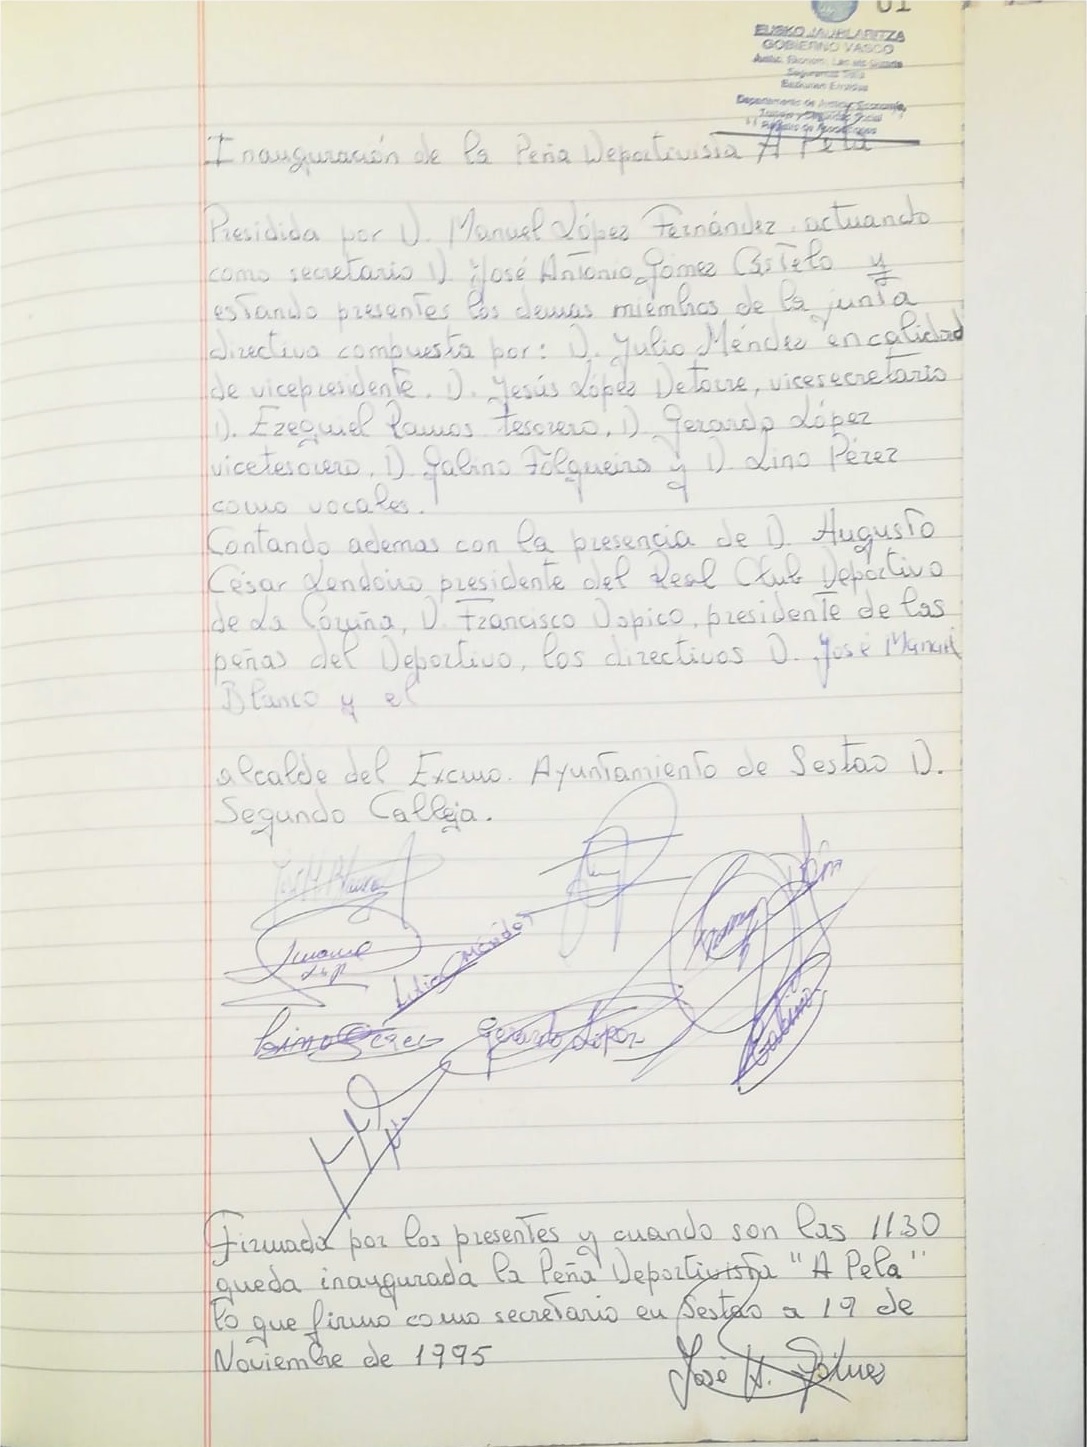 01
EUSKO JAURLARITZA
GOBIERNO VASCO
Departamento de Justicia, Economía,
Trabajo y Seguridad Social
Registro de Asociaciones
Inauguración de la Peña Deportivista "A Pela
Presidida por D. Manuel López Fernández, actuando
como secretario D. José Antonio Gómez Castelo y
estando presentes los demas miembros de la junta
directiva compuesta por: D. Julio Méndez en calidad
de vicepresidente. D. Jesús López Detorre, vicesecretario
D. Ezequiel Ramos tesorero, D. Gerardo López
vicetesorero, D. Galino Folgueira y D. Lino Pérez
como vocales.
Contando ademas con la presencia de D. Augusto
César Lendoiro presidente del Real Club Deportivo
de La Coruña, D. Francisco Dopico, presidente de las
peñas del Deportivo, los directivos D. José Manuel
Blanco y el
alcalde del Excmo. Ayuntamiento de Sestao D.
Segundo Calleja.
José M. Blanco
Julio Méndez
Lino Pérez
Gerardo López
Galino
Firmada por los presentes y cuando son las 11.30
queda inaugurada la Peña Deportivista "A Pela"
lo que firmo como secretario en Sestao a 19 de
Noviembre de 1995
José A. Gómez